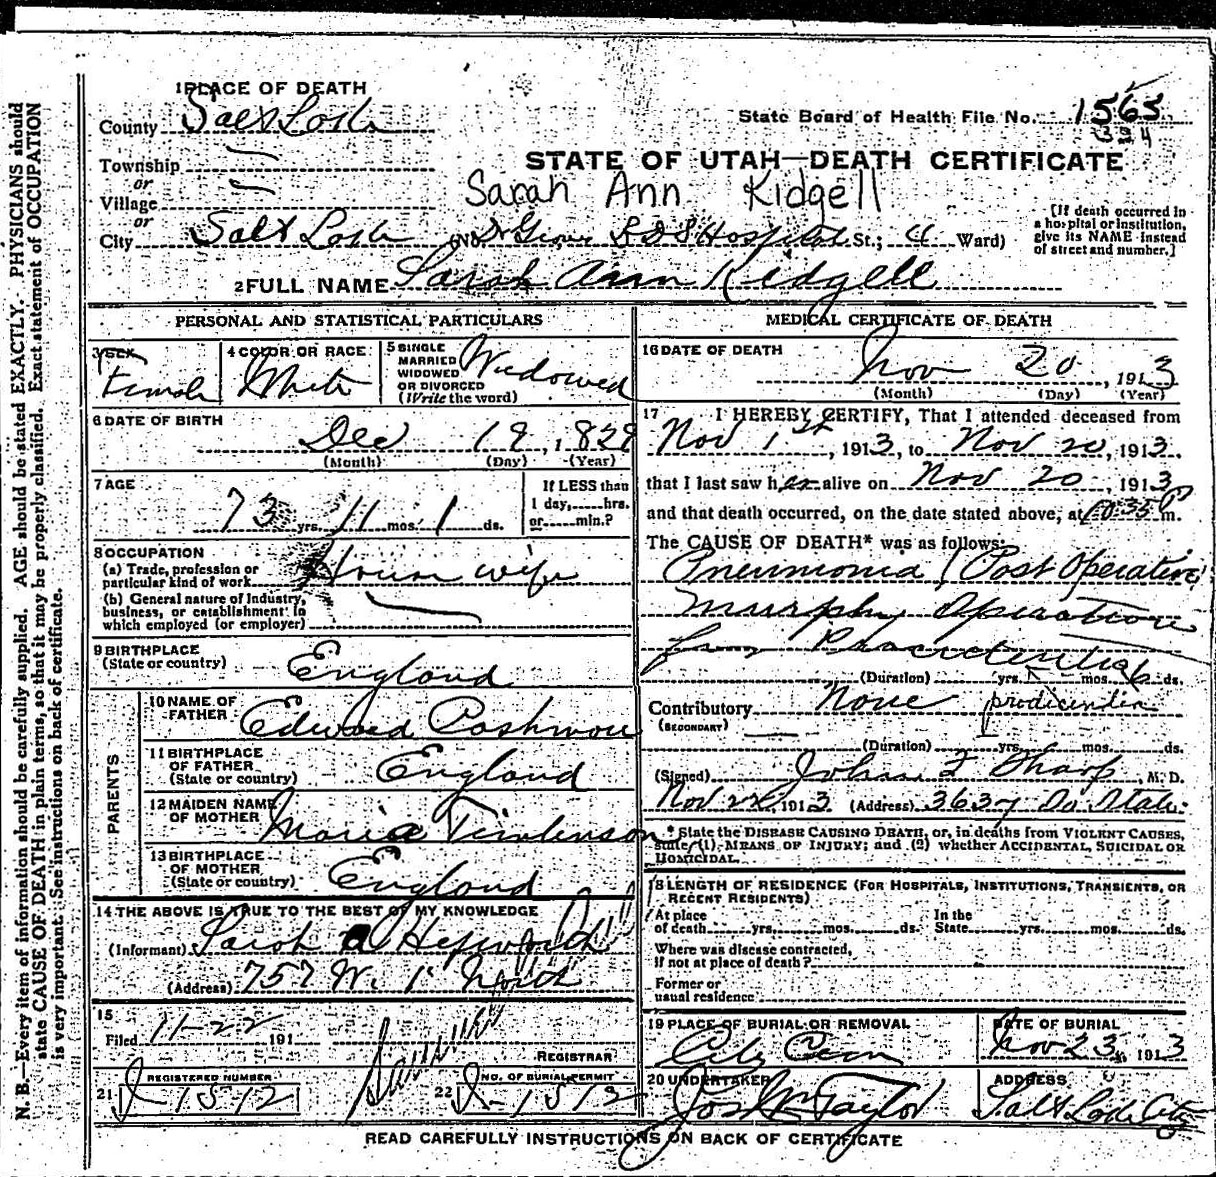 1 PLACE OF DEATH
County Salt Lake
State Board of Health File No. 1565
394
Township
or
Village
or
STATE OF UTAH—DEATH CERTIFICATE
Sarah Ann Kidgell
City Salt Lake (No. LDS Hospital St.; 4 Ward)
[If death occurred in
a hospital or institution,
give its NAME instead
of street and number.]
2 FULL NAME Sarah Ann Kidgell
PERSONAL AND STATISTICAL PARTICULARS
3 SEX
Female
4 COLOR OR RACE
White
5 SINGLE
MARRIED
WIDOWED
OR DIVORCED
(Write the word)
Widowed
6 DATE OF BIRTH
Dec 19, 1839
(Month) (Day) (Year)
7 AGE
73 yrs. 11 mos. 1 ds.
If LESS than
1 day, hrs.
or min.?
8 OCCUPATION
(a) Trade, profession or
particular kind of work House wife
(b) General nature of Industry,
business, or establishment in
which employed (or employer)
9 BIRTHPLACE
(State or country) England
PARENTS
10 NAME OF
FATHER Edward
11 BIRTHPLACE
OF FATHER
(State or country) England
12 MAIDEN NAME
OF MOTHER Maria Timlenson
13 BIRTHPLACE
OF MOTHER
(State or country) England
14 THE ABOVE IS TRUE TO THE BEST OF MY KNOWLEDGE
(Informant) Sarah A Hepworth
(Address) 757 W. 1 North
15
Filed 11-22 191
REGISTRAR
21 REGISTERED NUMBER
I-1512
22 NO. OF BURIAL PERMIT
I-1513
MEDICAL CERTIFICATE OF DEATH
16 DATE OF DEATH
Nov 20, 1913
(Month) (Day) (Year)
17 I HEREBY CERTIFY, That I attended deceased from
Nov 1st, 1913, to Nov 20, 1913.
that I last saw her alive on Nov 20, 1913
and that death occurred, on the date stated above, at 10:35 P m.
The CAUSE OF DEATH* was as follows:
Pneumonia (Post Operative
Murphy Operation
for Procidentia
(Duration) yrs. mos. ds.
Contributory None procidentia
(SECONDARY)
(Duration) yrs. mos. ds.
(Signed) John F Sharp, M. D.
Nov 22, 1913 (Address) 3637 So State.
* State the DISEASE CAUSING DEATH, or, in deaths from VIOLENT CAUSES,
state (1) MEANS OF INJURY; and (2) whether ACCIDENTAL, SUICIDAL OR
HOMICIDAL.
18 LENGTH OF RESIDENCE (FOR HOSPITALS, INSTITUTIONS, TRANSIENTS, OR
RECENT RESIDENTS)
At place
of death yrs. mos. ds.
In the
State yrs. mos. ds.
Where was disease contracted,
If not at place of death?
Former or
usual residence
19 PLACE OF BURIAL OR REMOVAL
City Cem
DATE OF BURIAL
Nov 23, 1913
20 UNDERTAKER
Jos Wm Taylor
ADDRESS
Salt Lake City
READ CAREFULLY INSTRUCTIONS ON BACK OF CERTIFICATE
N. B.—Every item of information should be carefully supplied. AGE should be stated EXACTLY. PHYSICIANS should
state CAUSE OF DEATH in plain terms, so that it may be properly classified. Exact statement of OCCUPATION
is very important. See instructions on back of certificate.